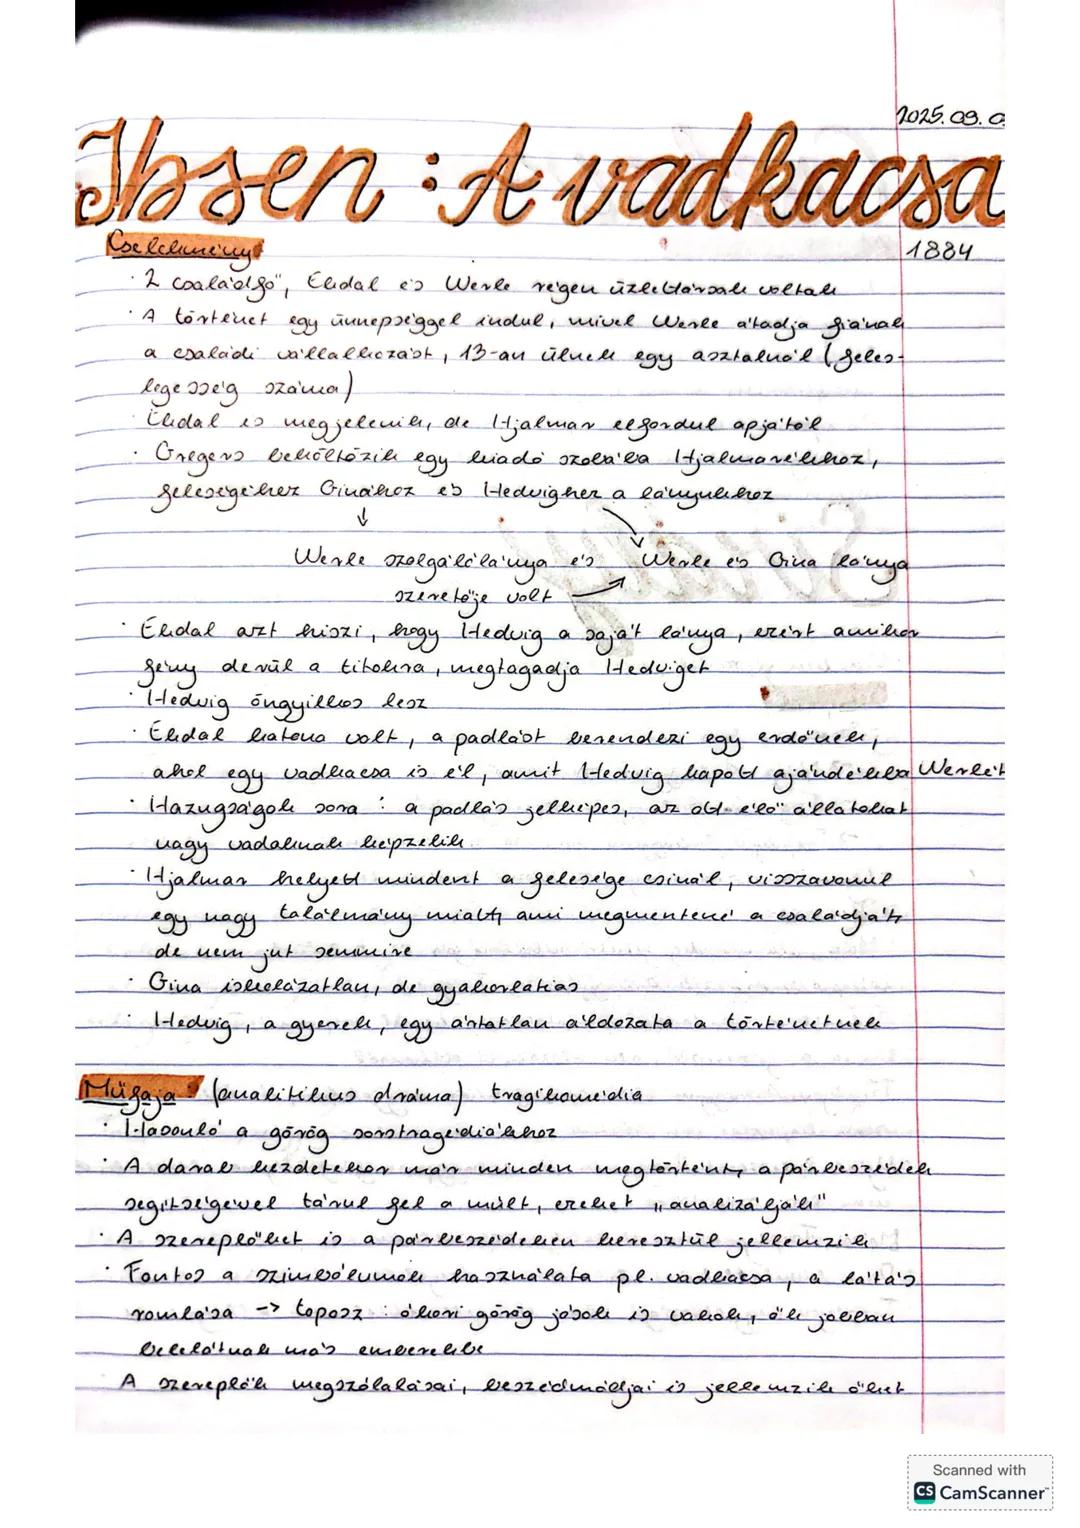 2025.09.0
Ibsen: A vadkacsa
Cselekmény
1884
· 2 családfő, Ekdal és Werle régen üzlettársak voltak
· A történet egy ünnepséggel indul, mivel Werle átadja fiának
a családi vállalkozást, 13-an ülnek egy asztalnál (feles-
legesség száma)
· Ekdal is megjelenik, de Hjalmar elfordul apjától
· Gregers beköltözik egy kiadó szobába Hjalmarékhoz,
feleségéhez Ginához és Hedvighez a lányukhoz
Werle szolgálólánya és
szeretője volt
Werle és Gina lánya
· Ekdal azt hiszi, hogy Hedvig a saját lánya, ezért amikor
fény derül a titokra, megtagadja Hedviget
· Hedvig öngyilkos lesz
· Ekdal katona volt, a padlást berendezi egy erdőnek,
ahol egy vadkacsa is él, amit Hedvig kapott ajándékba Werlét
· Hazugságok sora: a padlás jelképes, az ott élő állatokat
nagy vadaknak képzelik
· Hjalmar helyett mindent a felesége csinál, visszavonul
egy nagy találmány miatt, ami megmentené a családját,
de nem jut semmire
· Gina iskolázatlan, de gyakorlatias
· Hedvig, a gyerek, egy ártatlan áldozata a történetnek
Műfaja: (analitikus dráma) tragikomédia
· Hasonló a görög sorstragédiákhoz
· A darab kezdetekor már minden megtörtént, a párbeszédek
segítségével tárul fel a múlt, ezeket „analizálják"
· A szereplőket is a párbeszédeken keresztül jellemzik
· Fontos a szimbólumok használata pl. vadkacsa, a látás
romlása -> toposz: ókori görög jósok is vakok, ők jobban
belelátnak más emberekbe
A szereplők megszólalásai, beszédmódjai is jellemzik őket
Scanned with
CS CamScanner™